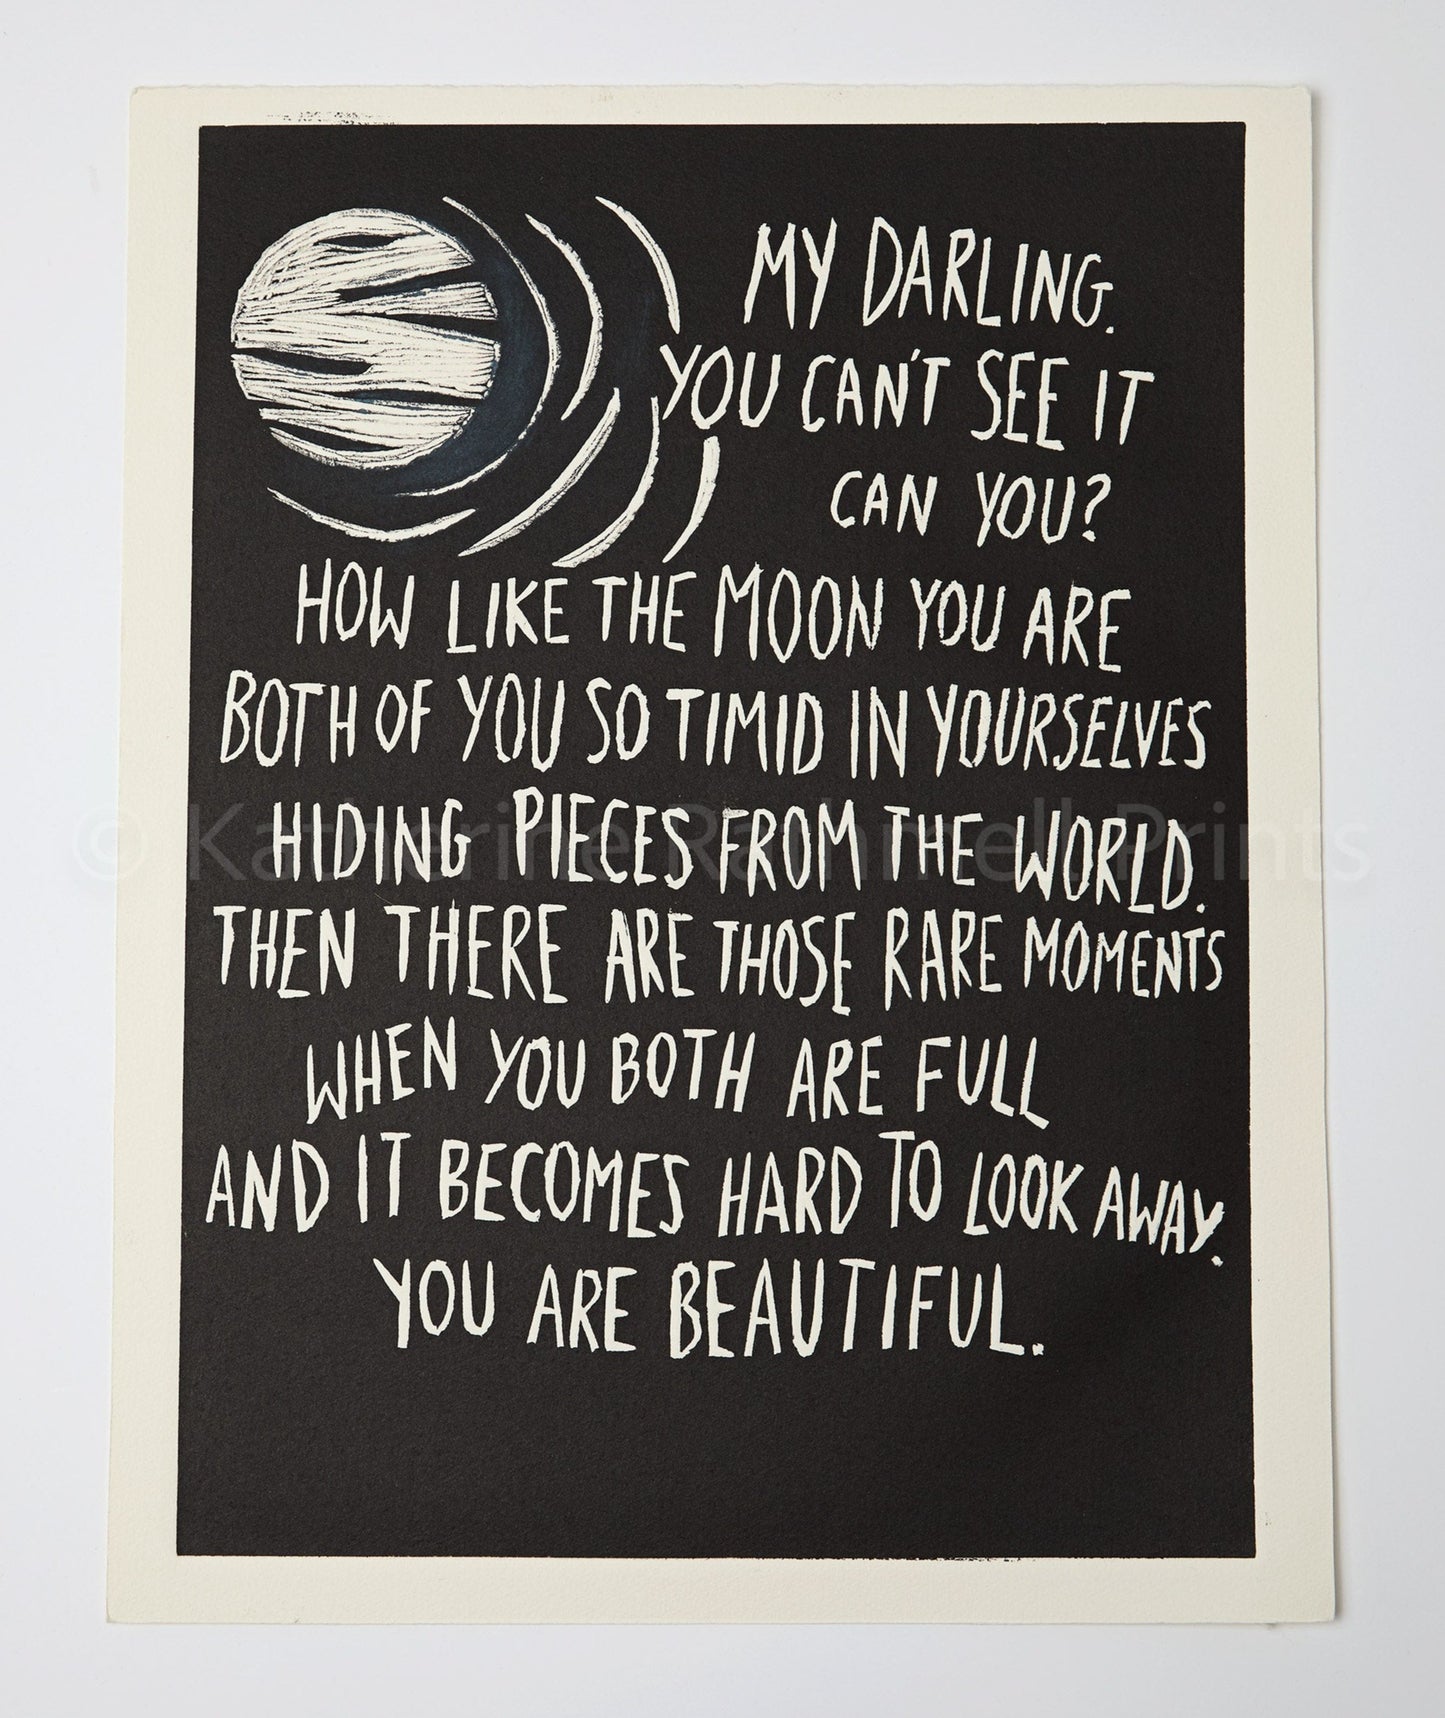 MY DARLING.
YOU CAN'T SEE IT
CAN YOU?
HOW LIKE THE MOON YOU ARE
BOTH OF YOU SO TIMID IN YOURSELVES
HIDING PIECES FROM THE WORLD.
© Katherine Rathmell Prints
THEN THERE ARE THOSE RARE MOMENTS
WHEN YOU BOTH ARE FULL
AND IT BECOMES HARD TO LOOK AWAY.
YOU ARE BEAUTIFUL.